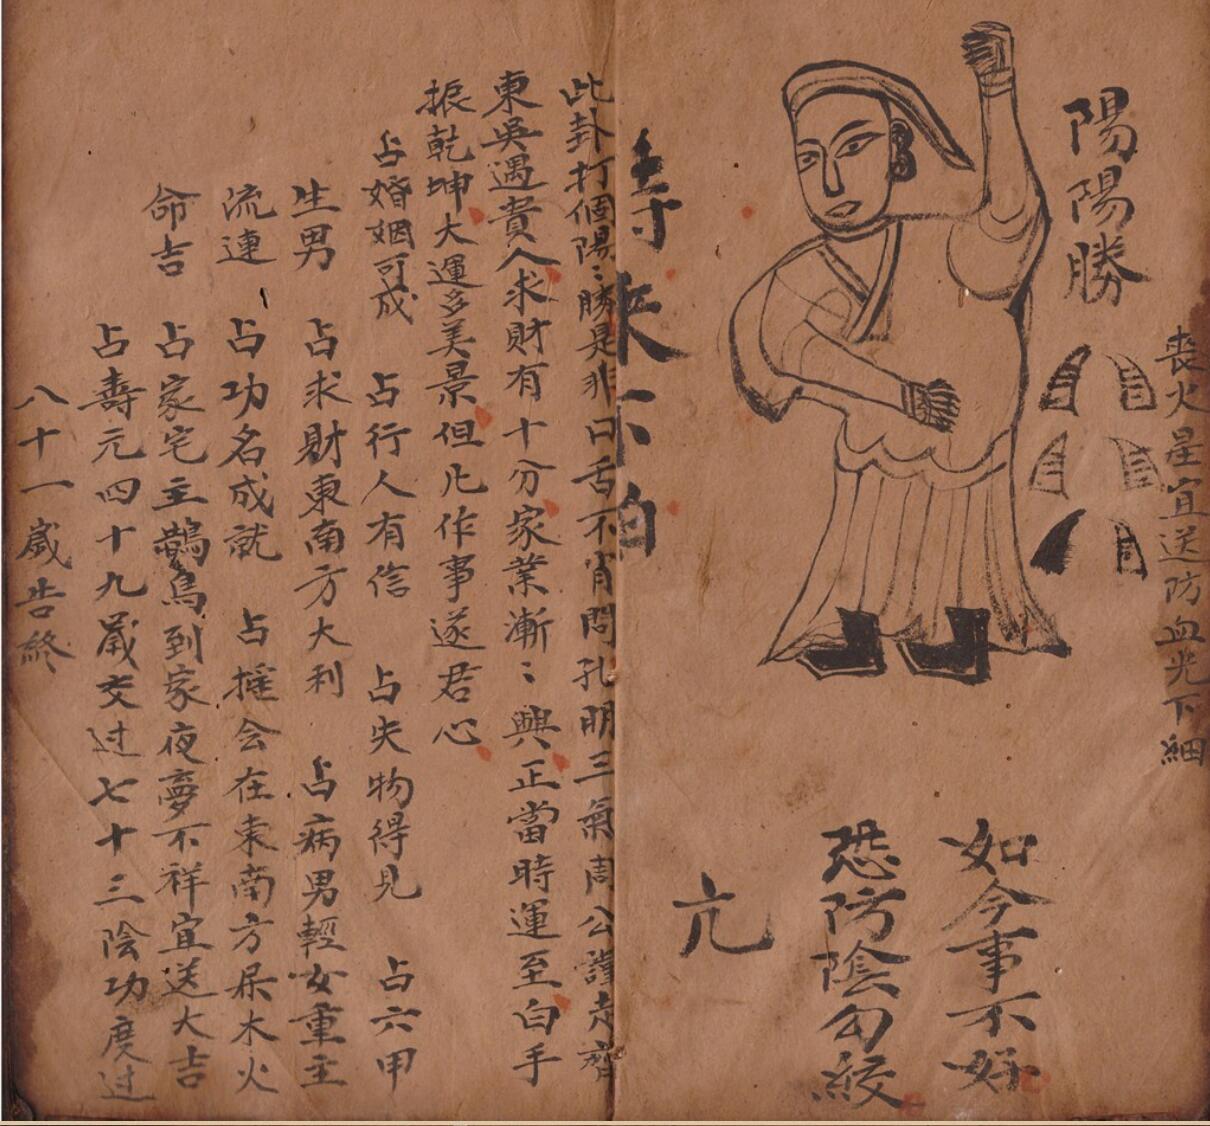 喪火星宜送防血光下細
陽陽勝
如今事不好
恐防陰勾絞
亢
来不怕
此卦打個陽〻勝是非口舌不肖問孔明三氣周公謹走齊
東吳遇貴人求財有十分家業漸〻興正當時運至白手
振乾坤大運多美景但凡作事遂君心
占婚姻可成 占行人有信 占失物得見 占六甲
生男 占求財東南方大利 占病男輕女重主
流連 占功名成就 占摇会在東南方杲木火
命吉 占家宅主鵲鳥到家夜夢不祥宜送大吉
占壽元四十九歲交过七十三陰功度过
八十一歲告終